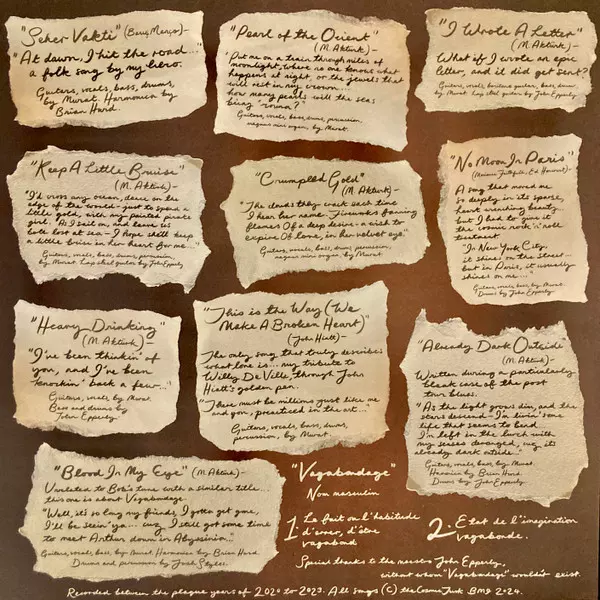 "Seher Vakti" (Barış Manço) –
"At dawn, I hit the road...
a folk song by my hero.
Guitars, vocals, bass, drums,
by Murat. Harmonica by
Brian Hurd.
"Pearl of the Orient"
(M. Aktürk) –
"Put me on a train through miles of
moonlight, where no one knows what
happens at night, or the jewels that
will rest in my crown...
how many pearls will the seas
bring 'round?"
Guitars, vocals, bass, drums, percussion,
organ by Murat.
"I Wrote A Letter"
(M. Aktürk) –
What if I wrote an epic
letter, and it did get sent?
Guitars, vocals, baritone guitar, bass, drums,
by Murat. Lap steel guitar by John Epperly.
"Keep A Little Bruise"
(M. Aktürk) –
"I'd cross any ocean, dance on the
edge of the world – just to spend a
little gold, with my painted pirate
girl. As I sail on, and leave us
both lost at sea – I hope she'll keep
a little bruise in her heart for me..."
Guitars, vocals, bass, drums, percussion,
by Murat. Lap steel guitar by John Epperly.
"Crumpled Gold"
(M. Aktürk) –
"The clouds they crack each time
I hear her name. Fireworks
flames Of a deep desire – a wish to
expire Of love, in her velvet eye."
Guitars, vocals, bass, drums, percussion,
organ by Murat.
"No Moon In Paris"
A song that moved me
so deeply in its sparse,
heart wrenching beauty
but I had to give it
the cosmic rock 'n' roll
treatment.
"In New York City,
it shines on the street –
but in Paris, it usually
shines on me..."
Guitars, vocals, bass, by Murat.
Drums by John Epperly.
"Heavy Drinking"
(M. Aktürk)
"I've been thinkin' of
you, and I've been
knockin' back a few..."
Guitars, vocals by Murat.
Bass and drums by
John Epperly.
"This is the Way (We
Make A Broken Heart)"
(John Hiatt) –
The only song that truly describes
what love is... my tribute to
Willy DeVille, through John
Hiatt's golden pen.
"There must be millions just like me
and you, practiced in the art..."
Guitars, vocals, bass, drums,
percussion, by Murat.
"Already Dark Outside"
(M. Aktürk) –
Written during a particularly
bleak case of the post
tour blues.
"As the light grows dim, and the
stars descend – I'm livin' some
life that seems to bend
I'm left in the lurch with
my senses deranged, cuz it's
already dark outside."
Guitars, vocals, bass, by Murat.
Harmonica by Brian Hurd.
Drums by John Epperly.
"Blood In My Eye" (M. Aktürk) –
Unrelated to Bob's tune with a similar title...
this one is about Vagabondage.
"Well, it's so long my friends, I gotta get gone,
I'll be seein' ya... cuz I still got some time
to meet Arthur down in Abyssinia."
Guitars, vocals, bass, by Murat. Harmonica by Brian Hurd.
Drums and percussion by Josh Styles.
"Vagabondage"
Nom masculin
1. Le fait ou l'habitude
d'errer, d'être
vagabond
2. Etat de l'imagination
vagabonde.
Special thanks to the maestro John Epperly,
without whom "Vagabondage" wouldn't exist.
Recorded between the plague years of 2020 to 2023. All songs (C) the Cosmic Turk BMI 2024.